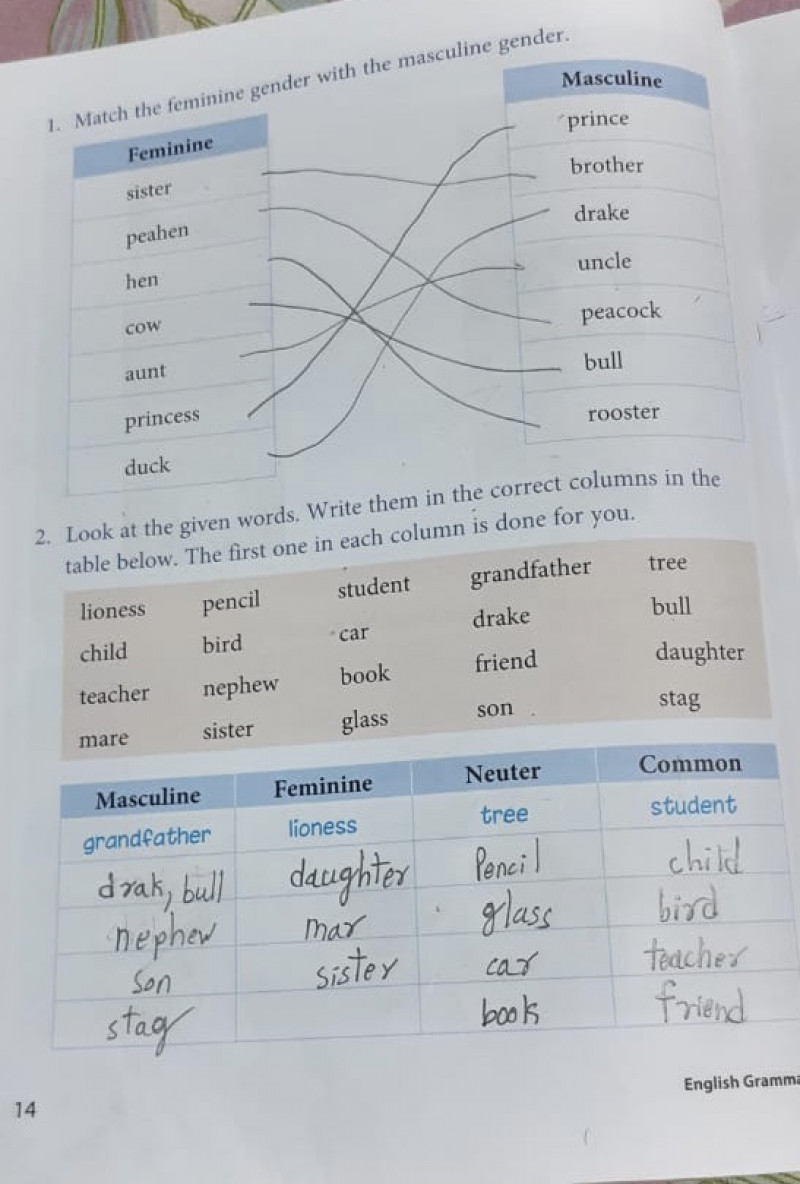 1. Match the feminine gender with the masculine gender.
Feminine
Masculine
sister
prince
peahen
brother
hen
drake
cow
uncle
aunt
peacock
princess
bull
duck
rooster
2. Look at the given words. Write them in the correct columns in the
table below. The first one in each column is done for you.
lioness pencil student grandfather tree
child bird car drake bull
teacher nephew book friend daughter
mare sister glass son stag
Masculine Feminine Neuter Common
grandfather lioness tree student
drak, bull daughter Pencil child
nephew mar glass bird
son sister car teacher
stag book friend
English Gramma
14